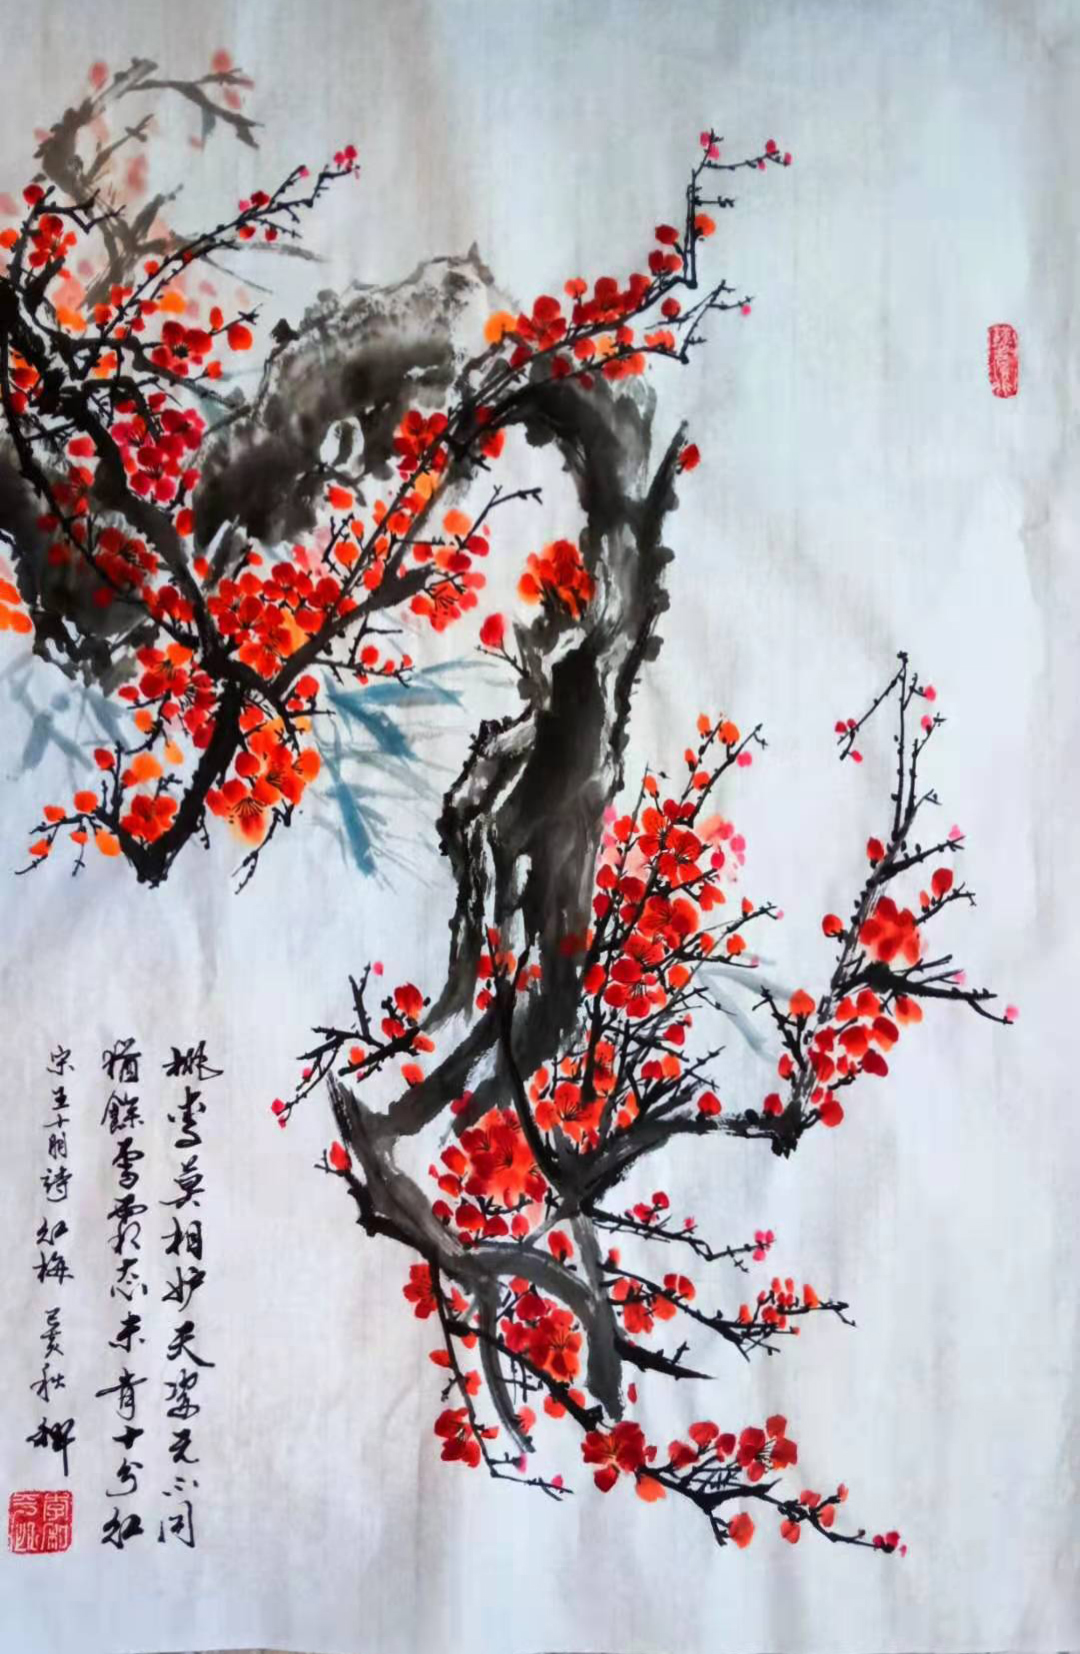 桃李莫相妒夭姿元不同
猶餘雪霜态未肯十分红
宋王十朋詩红梅 己亥秋